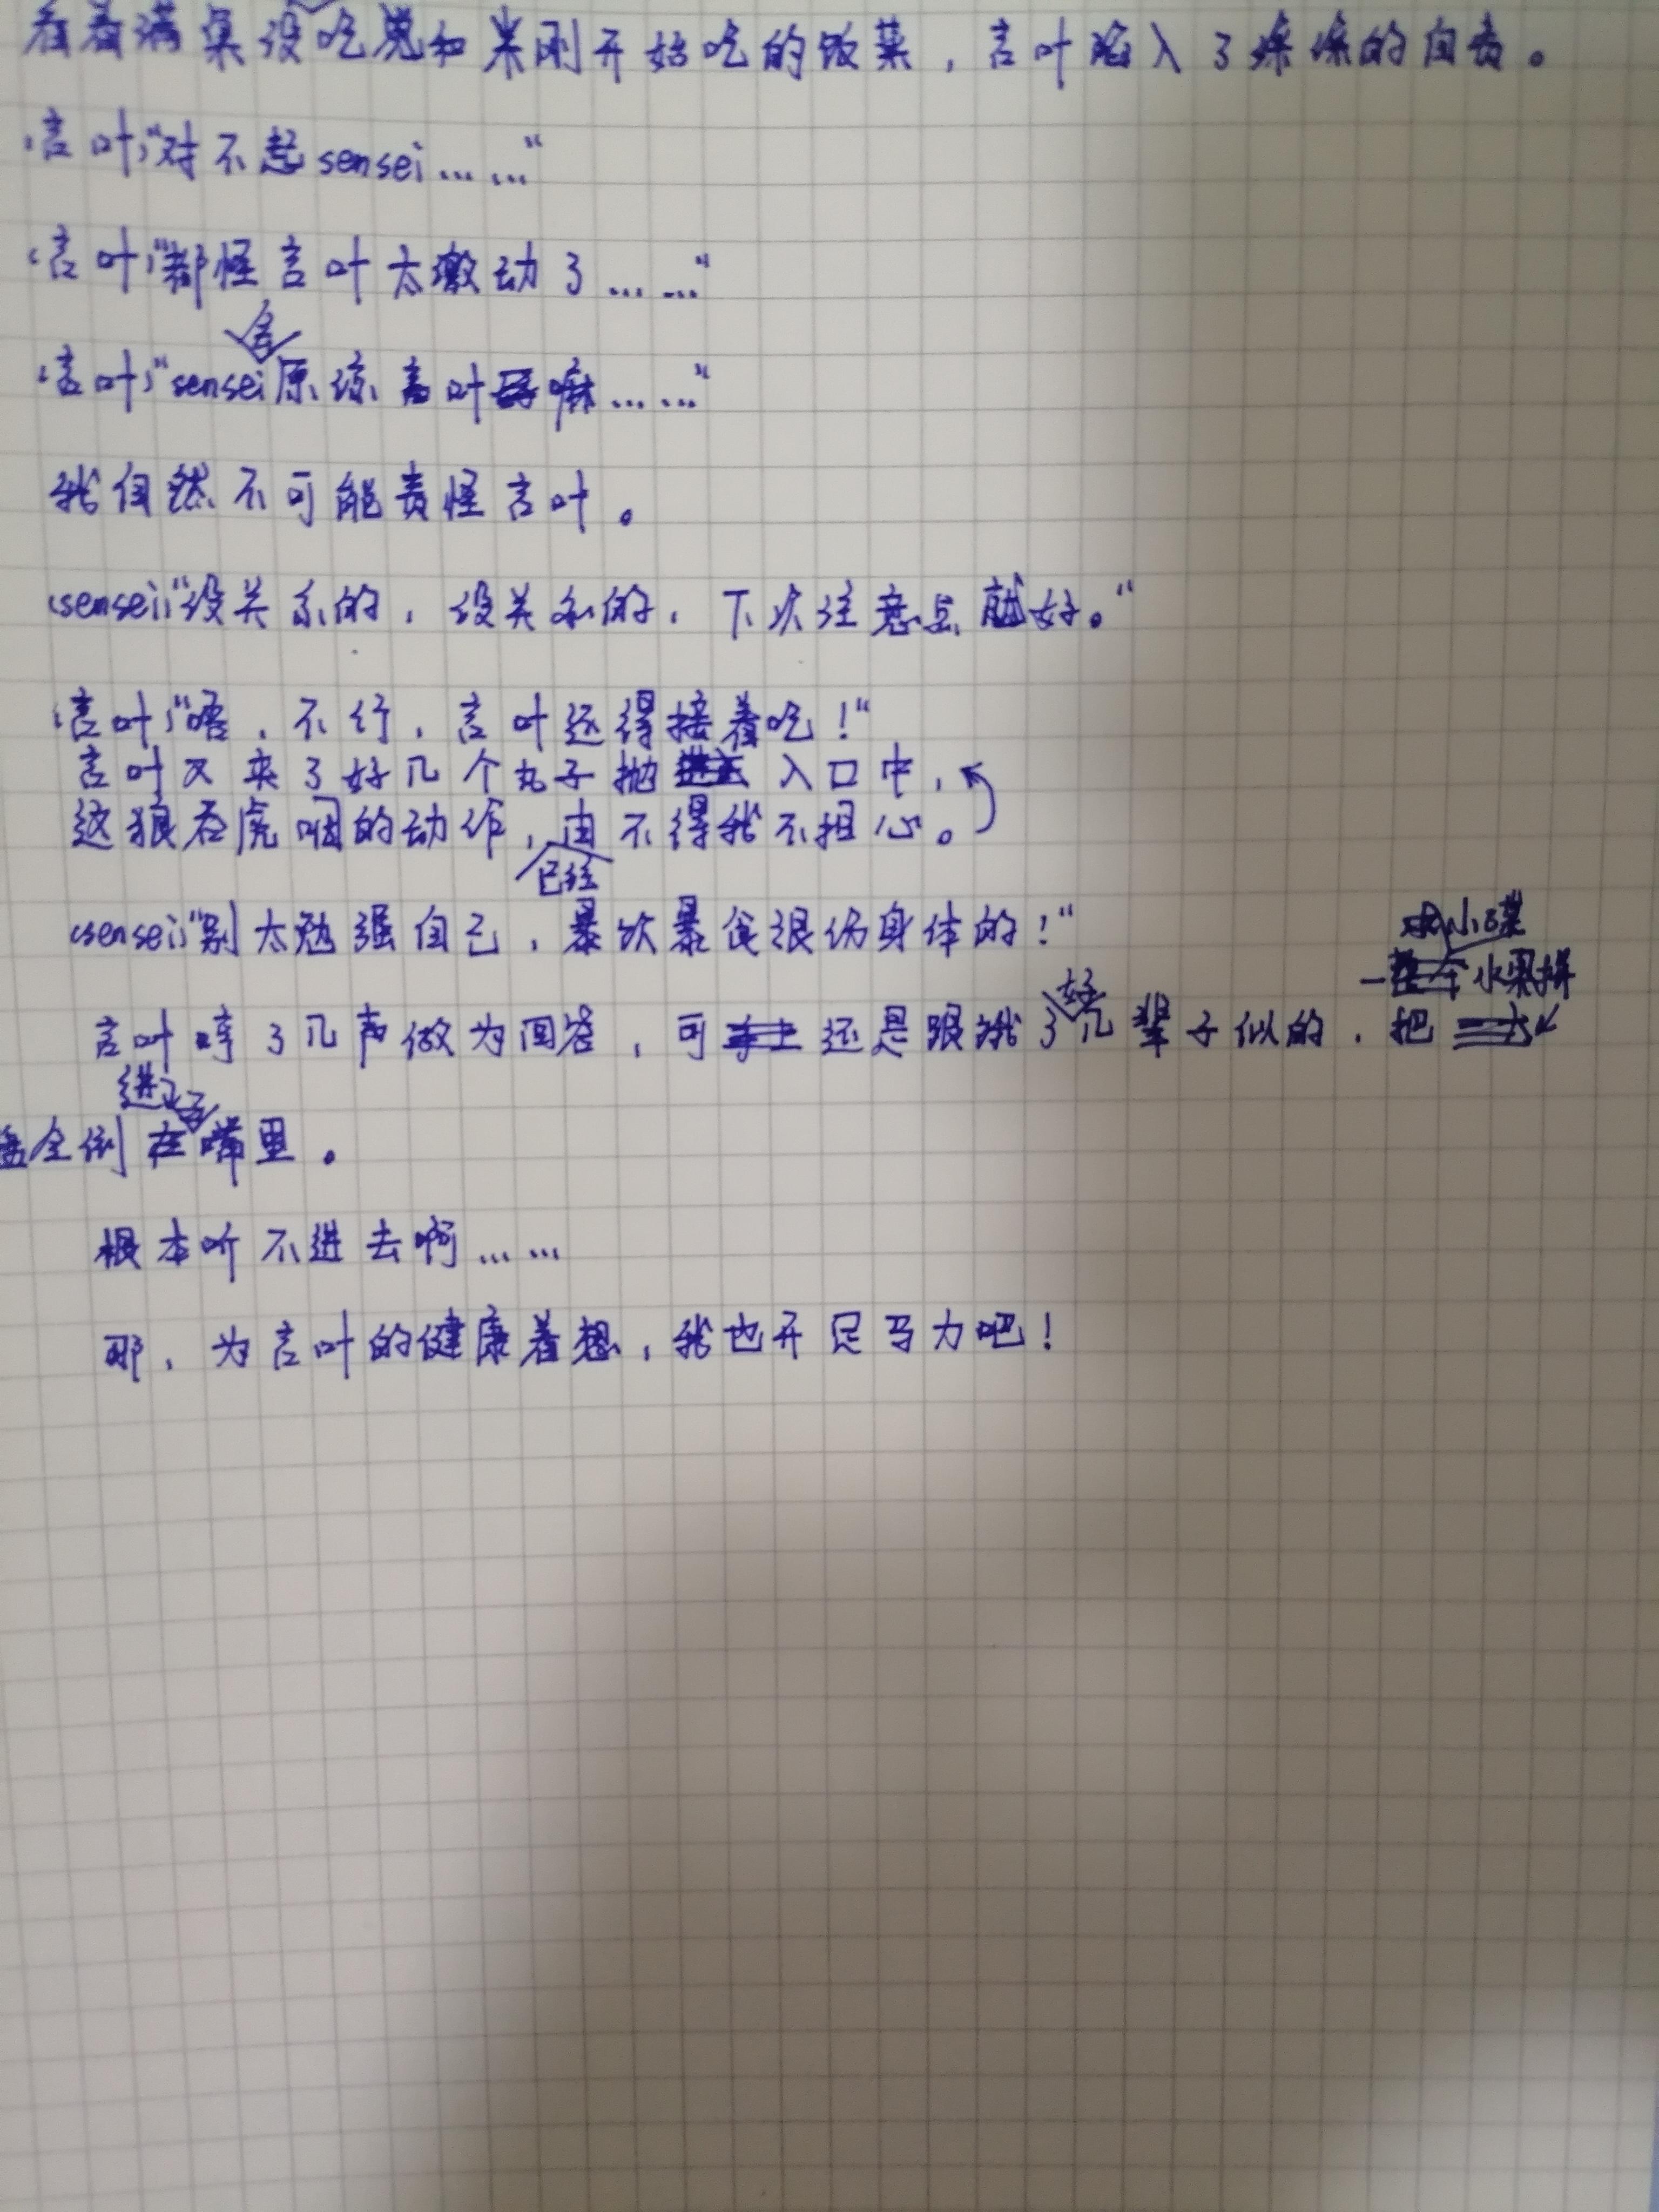 看着满桌没吃完和米刚开始吃的饭菜，言叶陷入了深深的自责。
〈言叶〉“对不起sensei……”
〈言叶〉“都怪言叶太激动了……”
〈言叶〉“sensei会原谅言叶嘛……”
我自然不可能责怪言叶。
〈sensei〉“没关系的，没关系的，下次注意点就好。”
〈言叶〉“唔，不行，言叶还得接着吃！”
言叶又夹了好几个丸子抛入口中，
这狼吞虎咽的动作，由不得我不担心。
〈sensei〉“别太勉强自己，暴饮暴食已经很伤身体的！”
言叶哼了几声做为回答，可还是跟饿了好几辈子似的，把一水果拼
盘全倒进了嘴里。
根本听不进去啊……
那，为言叶的健康着想，我也开足马力吧！